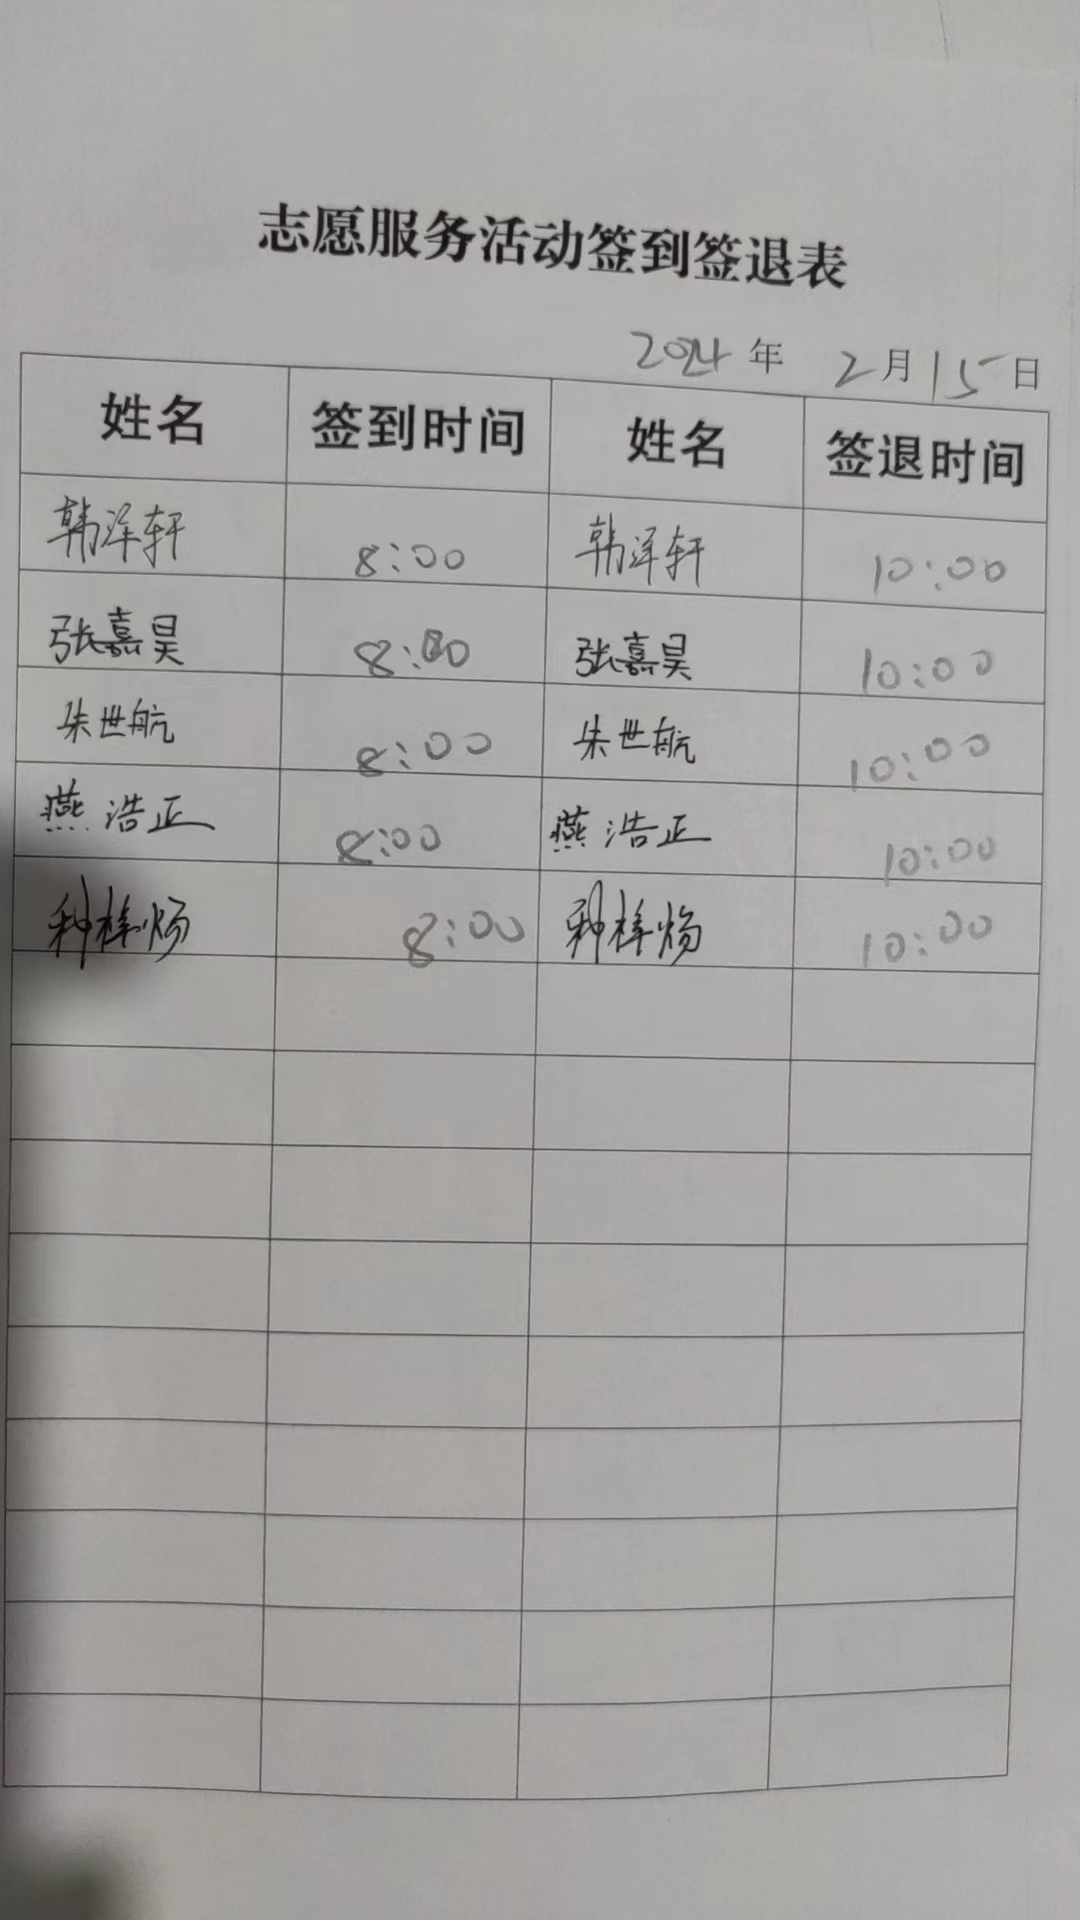 志愿服务活动签到签退表
2024年 2月15日
姓名 签到时间 姓名 签退时间
韩泽轩 8:00 韩泽轩 10:00
张嘉昊 8:00 张嘉昊 10:00
朱世航 8:00 朱世航 10:00
燕浩正 8:00 燕浩正 10:00
种梓炀 8:00 种梓炀 10:00